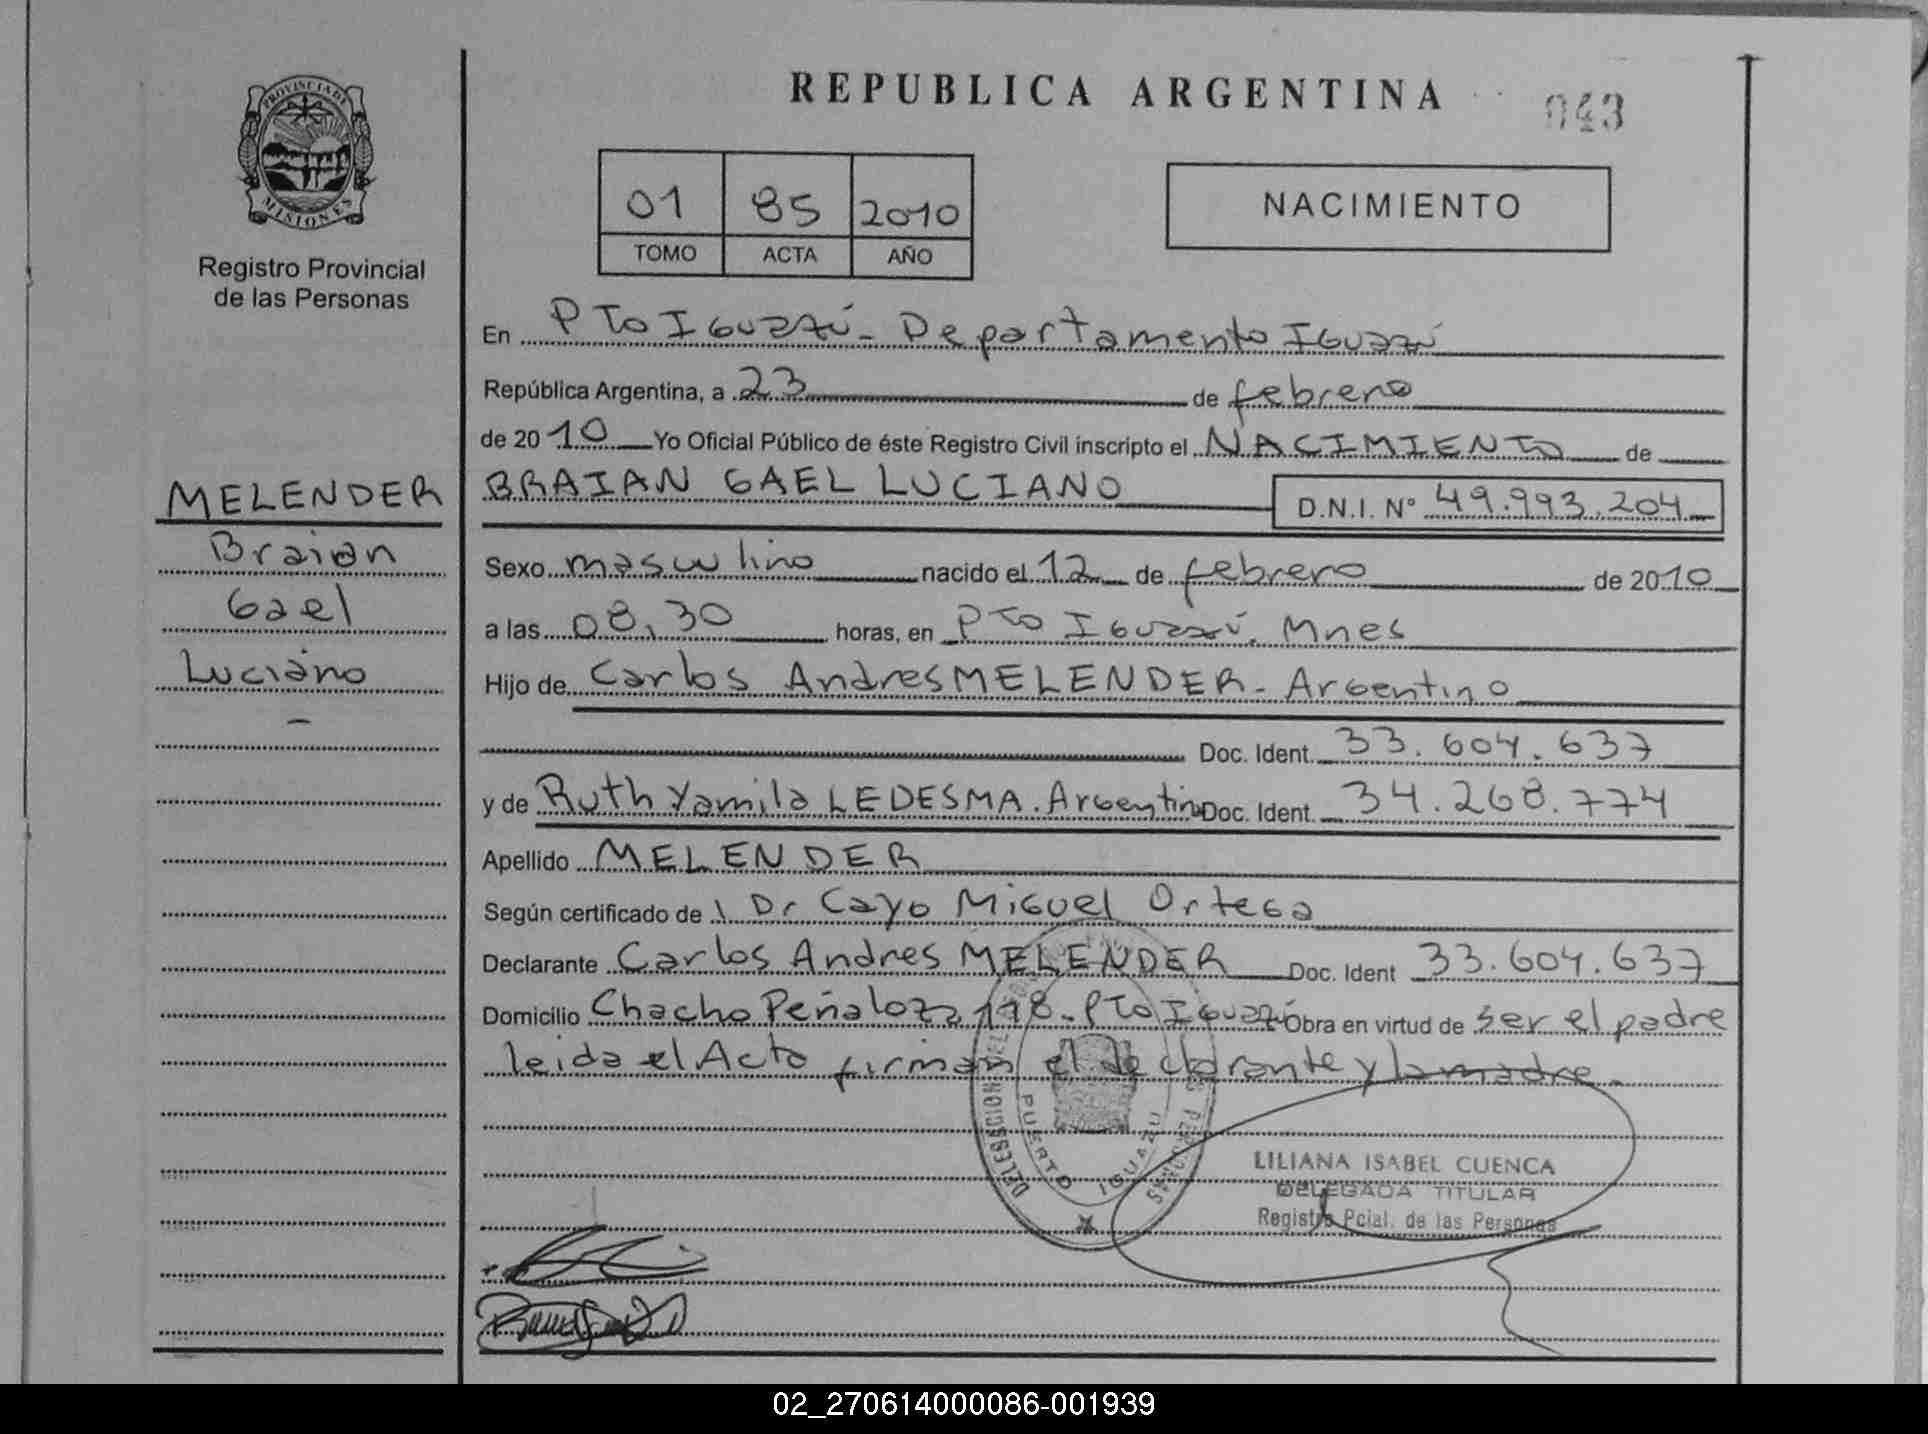 REPUBLICA ARGENTINA
043
PROVINCIA DE
MISIONES
Registro Provincial
de las Personas
01 85 2010
TOMO ACTA AÑO
NACIMIENTO
En PTo Iguazú - Departamento Iguazú
República Argentina, a 23 de febrero
de 2010 Yo Oficial Público de éste Registro Civil inscripto el NACIMIENTO de
MELENDER
Braian
Gael
Luciano
BRAIAN GAEL LUCIANO D.N.I. N° 49.993.204
Sexo masculino nacido el 12 de febrero de 2010
a las 08,30 horas, en PTo Iguazú. Mnes
Hijo de Carlos Andres MELENDER - Argentino
Doc. Ident. 33.604.637
y de Ruth Yamila LEDESMA. Argentina Doc. Ident. 34.268.774
Apellido MELENDER
Según certificado de Dr Cayo Miguel Ortega
Declarante Carlos Andres MELENDER Doc. Ident 33.604.637
Domicilio Chacho Peñaloza 118 - PTo Iguazú Obra en virtud de ser el padre
leida el Acta firman el declarante y la madre.
DELEGACION DEL
PUERTO IGUAZU
LILIANA ISABEL CUENCA
DELEGADA TITULAR
Registro Pcial. de las Personas
02_270614000086-001939